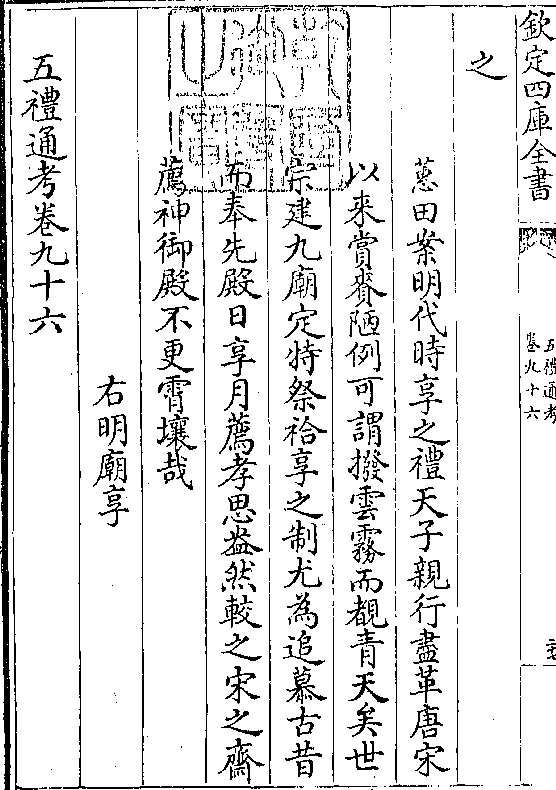 欽定四庫全書
五禮通考
卷九十六
之
蕙田案明代時享之禮天子親行盡革唐宋
以來賞賚陋例可謂撥雲霧而覩青天矣世
宗建九廟定特祭祫享之制尤為追慕古昔
而奉先殿日享月薦孝思盎然較之宋之齋
薦神御殿不更霄壤哉
右明廟享
五禮通考卷九十六